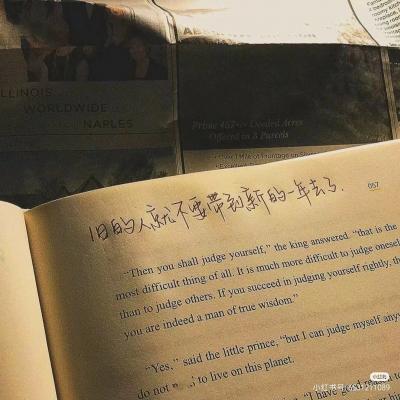 ILLINOIS
WORLDWIDE
NAPLES
Prime 457+/- Deeded Acres
Offered in 3 Parcels
旧的人就不要带到新的一年去了.
057
"Then you shall judge yourself," the king answered. "that is the
most difficult thing of all. It is much more difficult to judge oneself
than to judge others. If you succeed in judging yourself rightly, th
you are indeed a man of true wisdom."
"Yes," said the little prince, "but I can judge myself any
do not to live on this planet.
"I have good reason to
小红书
小红书号: